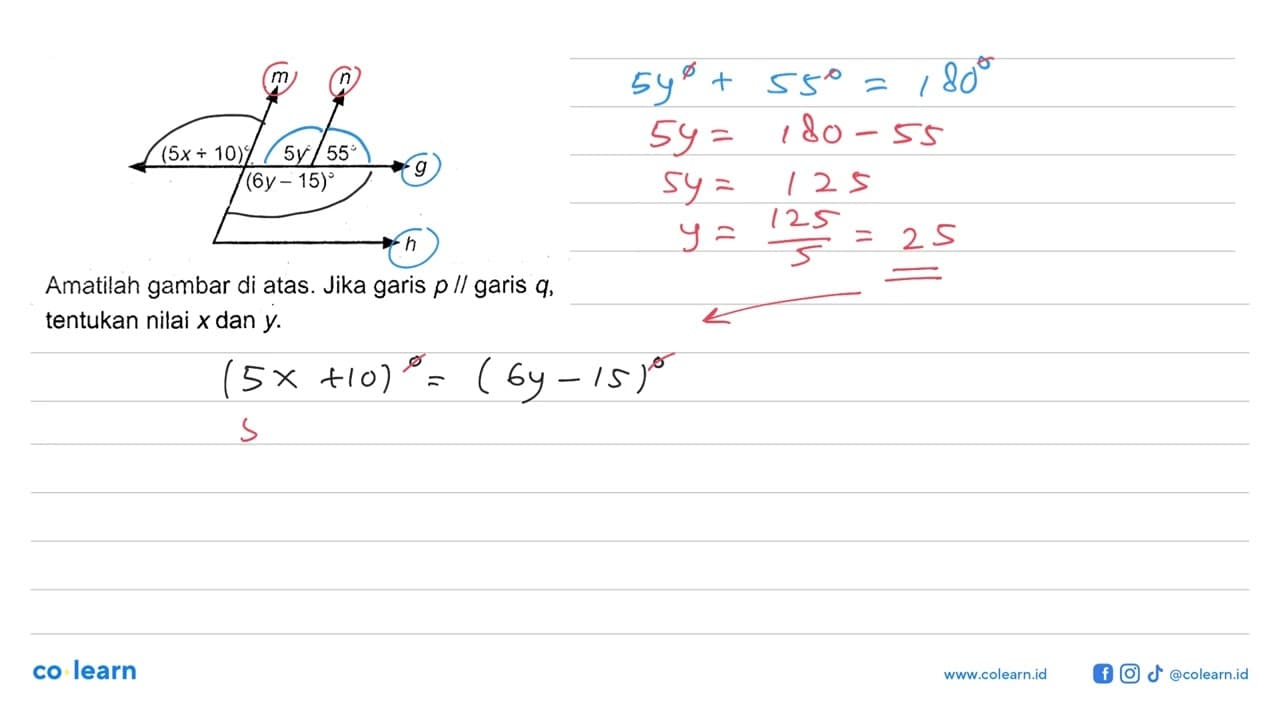 m n
(5x + 10)° 5y° 55°
g
(6y – 15)°
h
Amatilah gambar di atas. Jika garis p // garis q,
tentukan nilai x dan y.
5y° + 55° = 180°
5y = 180 - 55
5y = 125
y = 125/5 = 25
(5x +10)° = (6y - 15)°
5
co learn
www.colearn.id @colearn.id